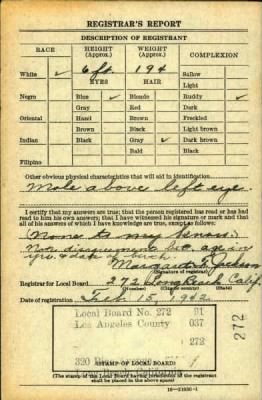 REGISTRAR'S REPORT
DESCRIPTION OF REGISTRANT
RACE HEIGHT (Approx.) WEIGHT (Approx.) COMPLEXION
White ✓ 6 ft. 194 Sallow
EYES HAIR Light
Negro Blue ✓ Blonde Ruddy ✓
Gray Red Dark
Oriental Hazel Brown Freckled
Brown Black Light brown
Indian Black Gray ✓ Dark brown
Bald Black
Filipino
Other obvious physical characteristics that will aid in identification
Mole above left eye.
I certify that my answers are true; that the person registered has read or has had
read to him his own answers; that I have witnessed his signature or mark and that
all of his answers of which I have knowledge are true, except as follows:
(None to my know)
Note disagreement bet. age in
yrs. & date of birth.
Margaret Jackson
(Signature of registrar)
Registrar for Local Board 272 Long Beach Calif.
(Number) (City or county) (State)
Date of registration Feb 15, 1942
Local Board No. 272 31
Los Angeles County 037
272
320
(STAMP OF LOCAL BOARD)
Long Beach, California
(The stamp of the Local Board having jurisdiction of the registrant
shall be placed in the above space.)
272